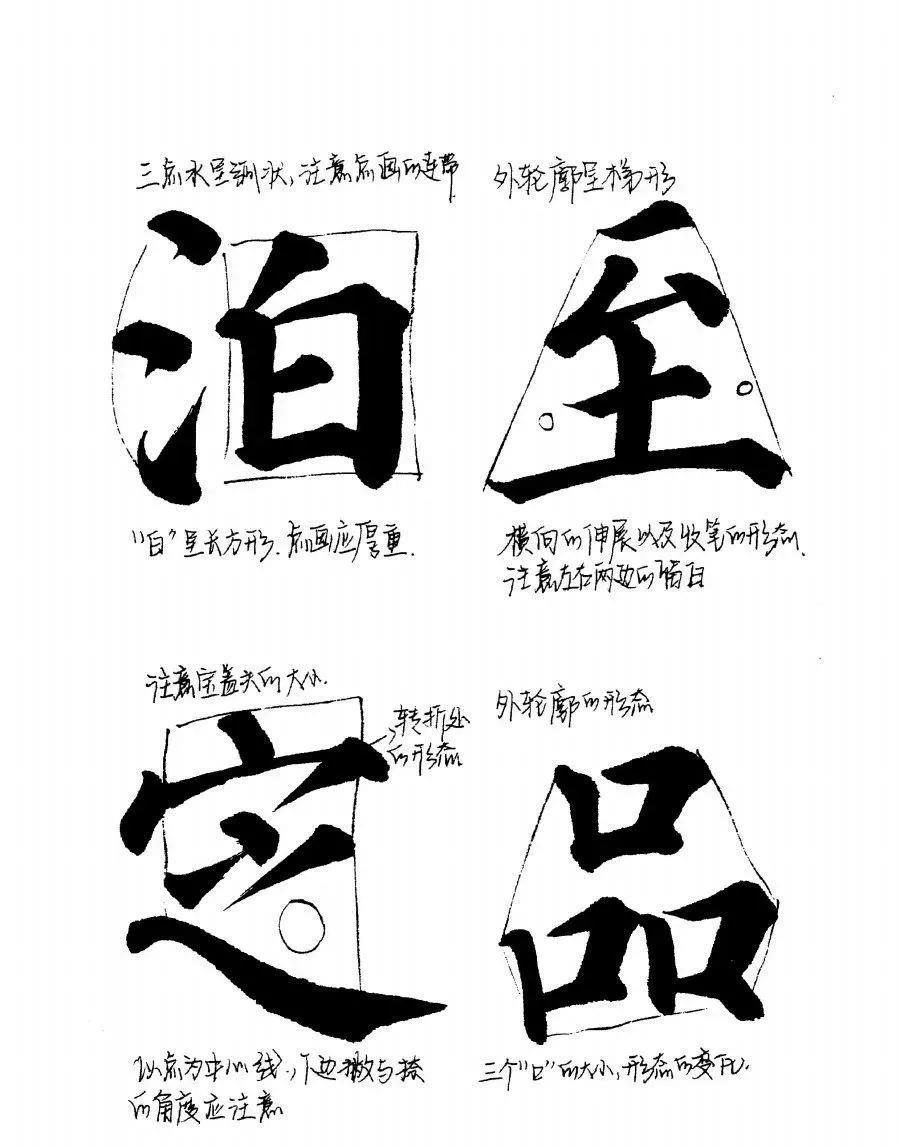 三点水呈弧状，注意点画的连带
泊
"白"呈长方形.点画应厚重.
外轮廓呈梯形
至
横向的伸展以及收笔的形态.
注意左右两边的留白
注意宝盖头的大小.
转折处
的形态
定
以点为中心线，下边撇与捺
的角度应注意
外轮廓的形态
品
三个"口"的大小，形态的变化.